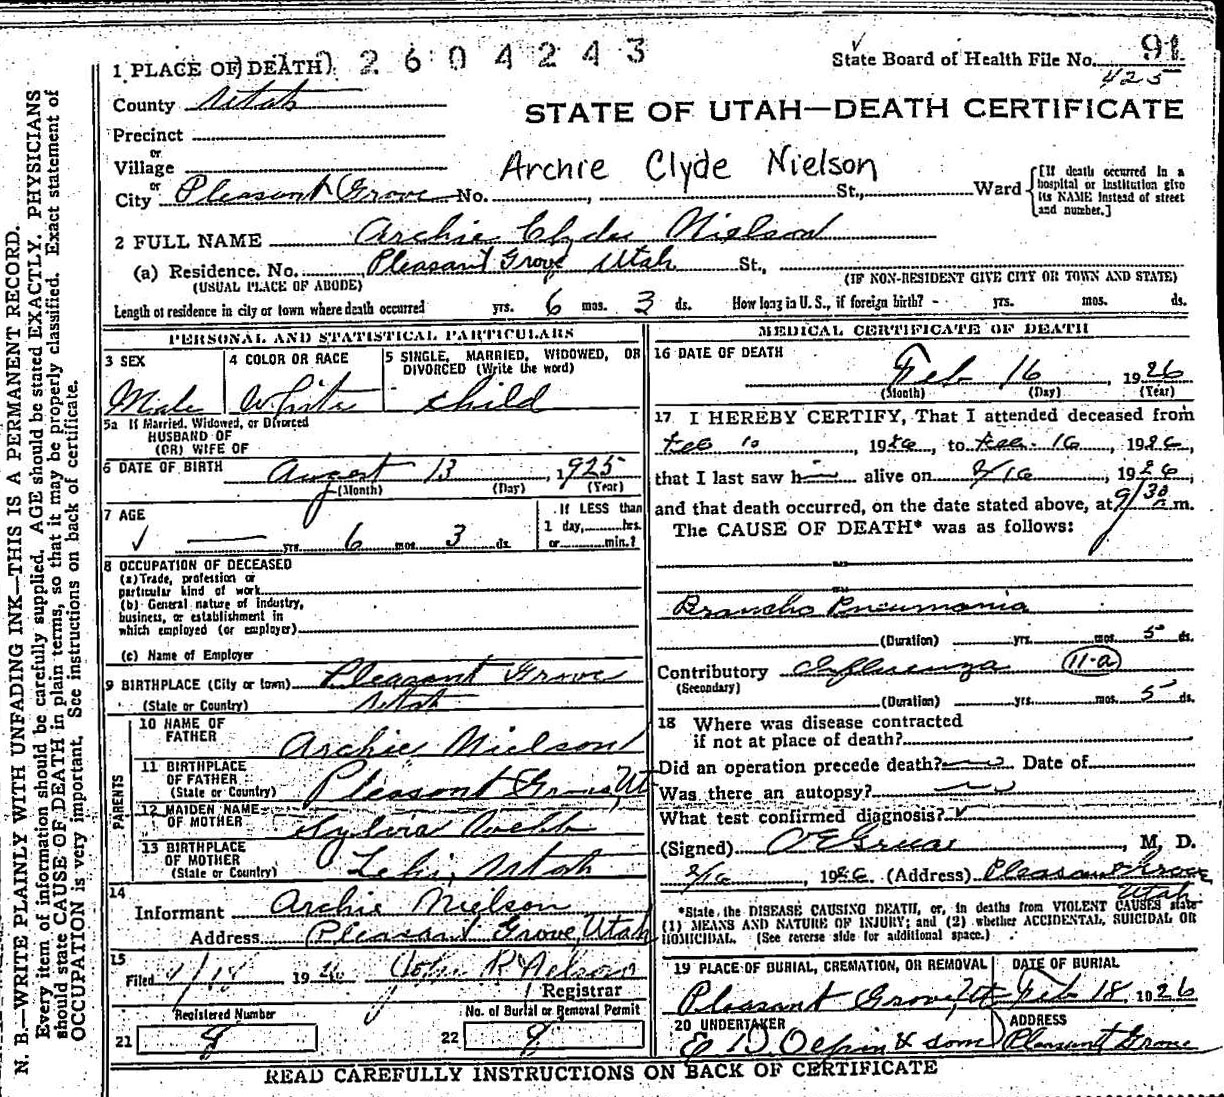 1 PLACE OF DEATH 2604243
State Board of Health File No. 91
425
County Utah
STATE OF UTAH—DEATH CERTIFICATE
Precinct
or
Village
Archie Clyde Nielson
or
City Pleasant Grove No. St., Ward
[If death occurred in a hospital or institution give its NAME instead of street and number.]
2 FULL NAME Archie Clyde Nielson
(a) Residence. No. Pleasant Grove Utah St.,
(USUAL PLACE OF ABODE) (IF NON-RESIDENT GIVE CITY OR TOWN AND STATE)
Length of residence in city or town where death occurred yrs. 6 mos. 3 ds. How long in U. S., if foreign birth? yrs. mos. ds.
PERSONAL AND STATISTICAL PARTICULARS
3 SEX
Male
4 COLOR OR RACE
White
5 SINGLE, MARRIED, WIDOWED, OR
DIVORCED (Write the word)
Child
5a If Married, Widowed, or Divorced
HUSBAND OF
(OR) WIFE OF
6 DATE OF BIRTH August 13, 1925
(Month) (Day) (Year)
7 AGE
— yrs. 6 mos. 3 ds.
If LESS than
1 day, hrs.
or min.?
8 OCCUPATION OF DECEASED
(a) Trade, profession or
particular kind of work
(b) General nature of industry,
business, or establishment in
which employed (or employer)
(c) Name of Employer
9 BIRTHPLACE (City or town) Pleasant Grove
(State or Country) Utah
PARENTS
10 NAME OF
FATHER Archie Nielson
11 BIRTHPLACE
OF FATHER
(State or Country) Pleasant Grove, Ut
12 MAIDEN NAME
OF MOTHER Sylvia Webb
13 BIRTHPLACE
OF MOTHER
(State or Country) Lehi, Utah
14
Informant Archie Nielson
Address Pleasant Grove, Utah
15
Filed 2/18 1926 John R Nelson
Registrar
Registered Number
21 8
No. of Burial or Removal Permit
22 8
MEDICAL CERTIFICATE OF DEATH
16 DATE OF DEATH
Feb 16, 1926
(Month) (Day) (Year)
17 I HEREBY CERTIFY, That I attended deceased from
Feb 10, 1926, to Feb. 16, 1926,
that I last saw him alive on 2/16, 1926
and that death occurred, on the date stated above, at 9/30 m.
The CAUSE OF DEATH* was as follows:
Broncho Pneumonia
(Duration) yrs. mos. 5 ds.
Contributory Influenza 11-a
(Secondary)
(Duration) yrs. mos. 5 ds.
18 Where was disease contracted
if not at place of death?
Did an operation precede death? no Date of
Was there an autopsy? no
What test confirmed diagnosis?
(Signed) , M. D.
2/16, 1926 (Address) Pleasant Grove
Utah
*State the DISEASE CAUSING DEATH, or, in deaths from VIOLENT CAUSES state
(1) MEANS AND NATURE OF INJURY; and (2) whether ACCIDENTAL, SUICIDAL OR
HOMICIDAL. (See reverse side for additional space.)
19 PLACE OF BURIAL, CREMATION, OR REMOVAL
Pleasant Grove, Ut
DATE OF BURIAL
Feb 18, 1926
20 UNDERTAKER
E D Olpin & Sons
ADDRESS
Pleasant Grove
READ CAREFULLY INSTRUCTIONS ON BACK OF CERTIFICATE
N. B.—WRITE PLAINLY WITH UNFADING INK—THIS IS A PERMANENT RECORD.
Every item of information should be carefully supplied. AGE should be stated EXACTLY. PHYSICIANS
should state CAUSE OF DEATH in plain terms, so that it may be properly classified. Exact statement of
OCCUPATION is very important. See instructions on back of certificate.